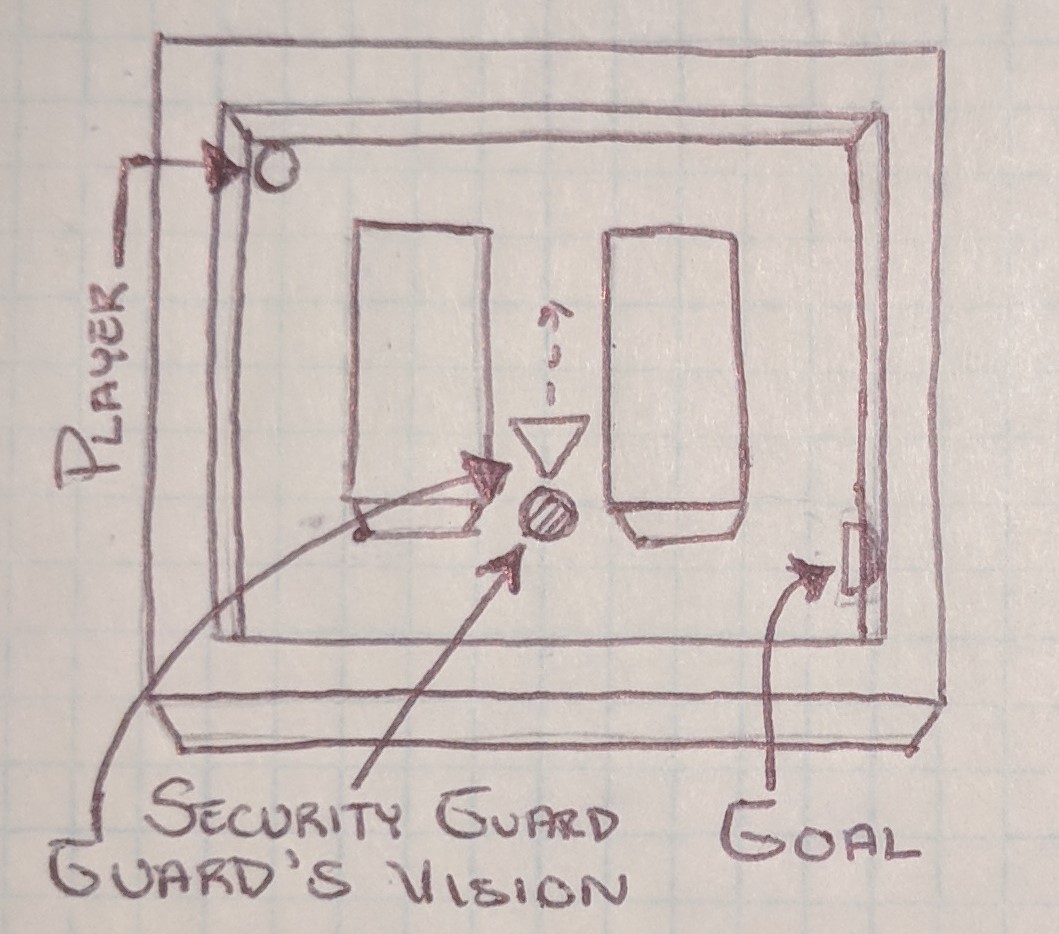 PLAYER
SECURITY GUARD
GUARD'S VISION
GOAL